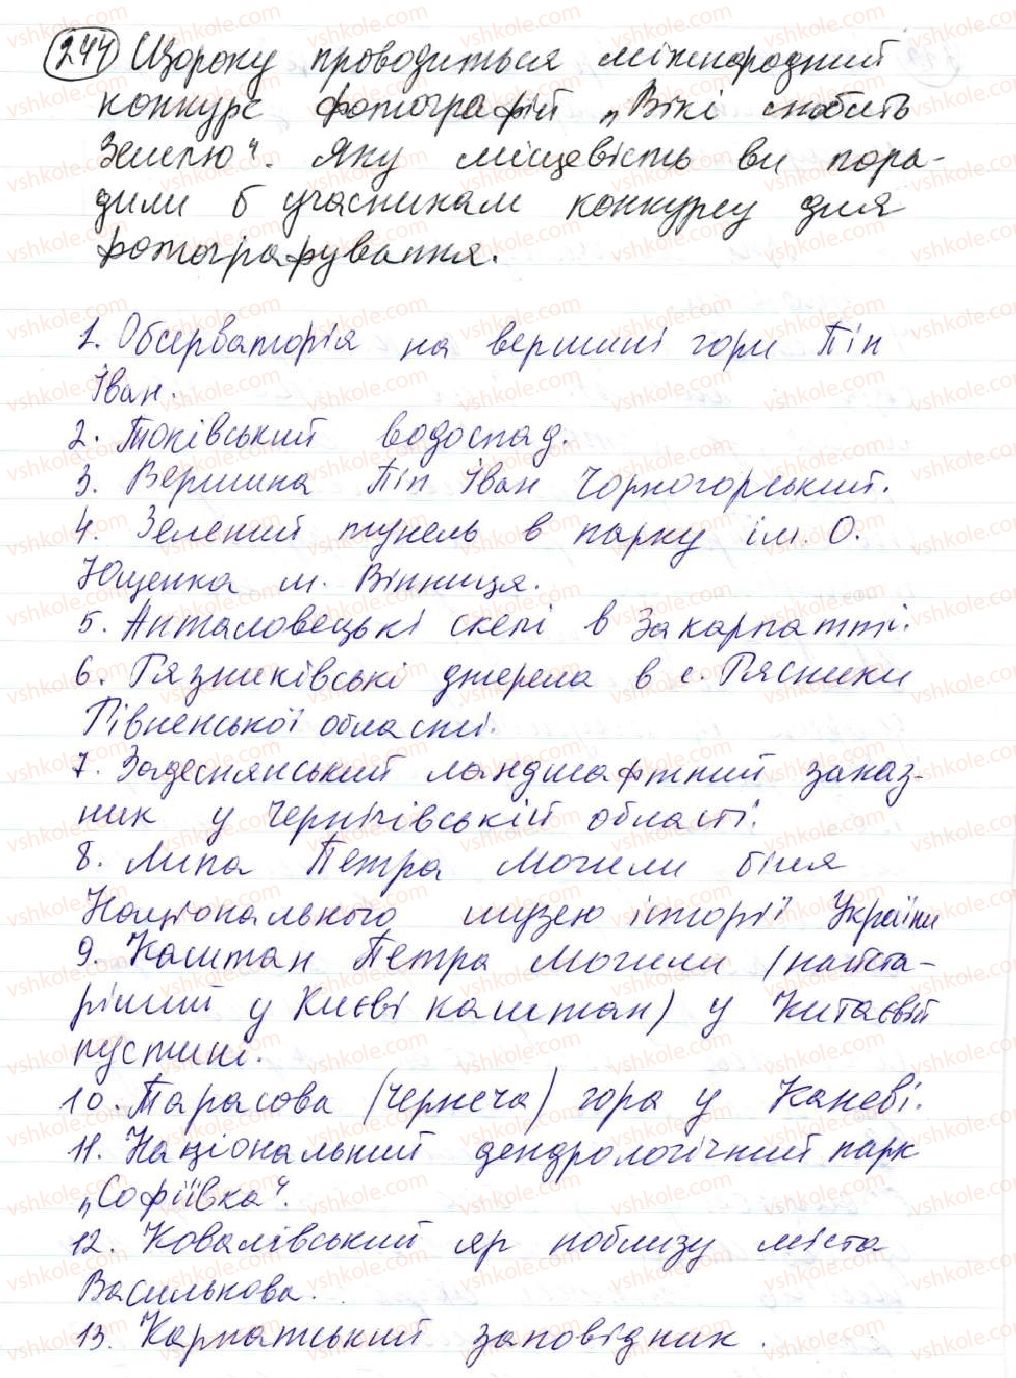 244 Щороку проводиться міжнародний
конкурс фотографій „Вікі любить
Землю“. Яку місцевість ви пора-
дили б учасникам конкурсу для
фотографування.
1. Обсерваторія на вершині гори Піп
Іван.
2. Токівський водоспад.
3. Вершина Піп Іван Чорногорський.
4. Зелений тунель в парку ім. О.
Ющенка м. Вінниця.
5. Анталовецькі скелі в Закарпатті.
6. Гязниківські джерела в с. Рясники
Рівненської області.
7. Задеснянський ландшафтний заказ-
ник у Чернігівській області.
8. Липа Петра Могили біля
Національного музею історії України
9. Каштан Петра Могили (найста-
ріший у Києві каштан) у Китаєвій
пустині.
10. Тарасова (Чернеча) гора у Каневі.
11. Національний дендрологічний парк
„Софіївка“.
12. Ковалівський яр поблизу міста
Василькова.
13. Карпатський заповідник.
vshkole.com